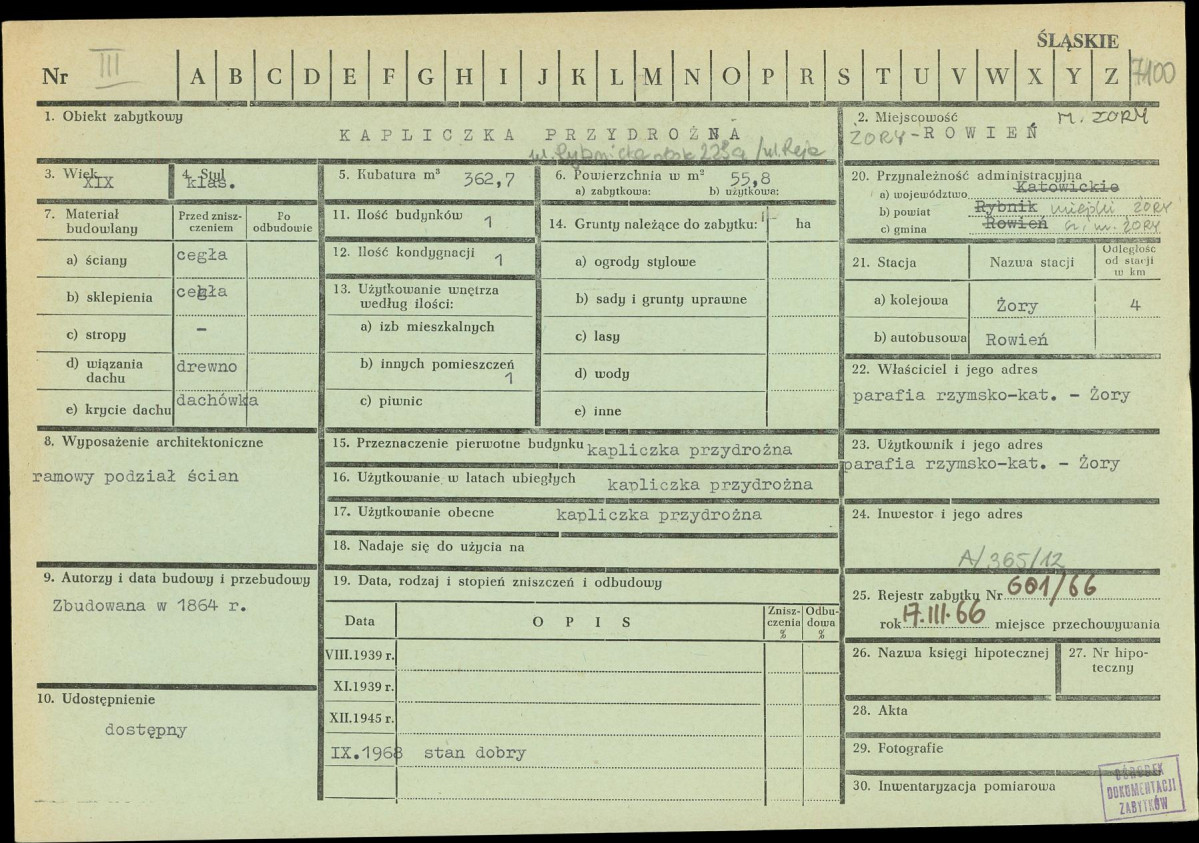 ŚLĄSKIE
Nr III A B C D E F G H I J K L M N O P R S T U V W X Y Z 7100
1. Obiekt zabytkowy
KAPLICZKA PRZYDROŻNA
ul. Rybnicka obok 223a /ul. Reja
2. Miejscowość M. ŻORY
ŻORY-ROWIEŃ
3. Wiek
XIX
4. Styl
klas.
5. Kubatura m³ 362,7
6. Powierzchnia w m² 55,8
a) zabytkowa: b) użytkowa:
20. Przynależność administracyjna
a) województwo Katowickie
b) powiat Rybnik miejski ŻORY
c) gmina Rowień m. ŻORY
7. Materiał budowlany
Przed zniszczeniem
Po odbudowie
a) ściany cegła
b) sklepienia cegła
c) stropy -
d) wiązania dachu drewno
e) krycie dachu dachówka
11. Ilość budynków 1
12. Ilość kondygnacji 1
13. Użytkowanie wnętrza według ilości:
a) izb mieszkalnych
b) innych pomieszczeń 1
c) piwnic
14. Grunty należące do zabytku: ha
a) ogrody stylowe
b) sady i grunty uprawne
c) lasy
d) wody
e) inne
21. Stacja Nazwa stacji Odległość od stacji w km
a) kolejowa Żory 4
b) autobusowa Rowień
22. Właściciel i jego adres
parafia rzymsko-kat. - Żory
8. Wyposażenie architektoniczne
ramowy podział ścian
15. Przeznaczenie pierwotne budynku kapliczka przydrożna
16. Użytkowanie w latach ubiegłych kapliczka przydrożna
17. Użytkowanie obecne kapliczka przydrożna
18. Nadaje się do użycia na
23. Użytkownik i jego adres
parafia rzymsko-kat. - Żory
24. Inwestor i jego adres
A/365/12
9. Autorzy i data budowy i przebudowy
Zbudowana w 1864 r.
19. Data, rodzaj i stopień zniszczeń i odbudowy
Data OPIS Zniszczenia % Odbudowa %
VIII.1939 r.
XI.1939 r.
XII.1945 r.
IX.1968 stan dobry
25. Rejestr zabytku Nr 601/66
rok 17.III.66 miejsce przechowywania
26. Nazwa księgi hipotecznej
27. Nr hipoteczny
10. Udostępnienie
dostępny
28. Akta
29. Fotografie
30. Inwentaryzacja pomiarowa
OŚRODEK
DOKUMENTACJI
ZABYTKÓW